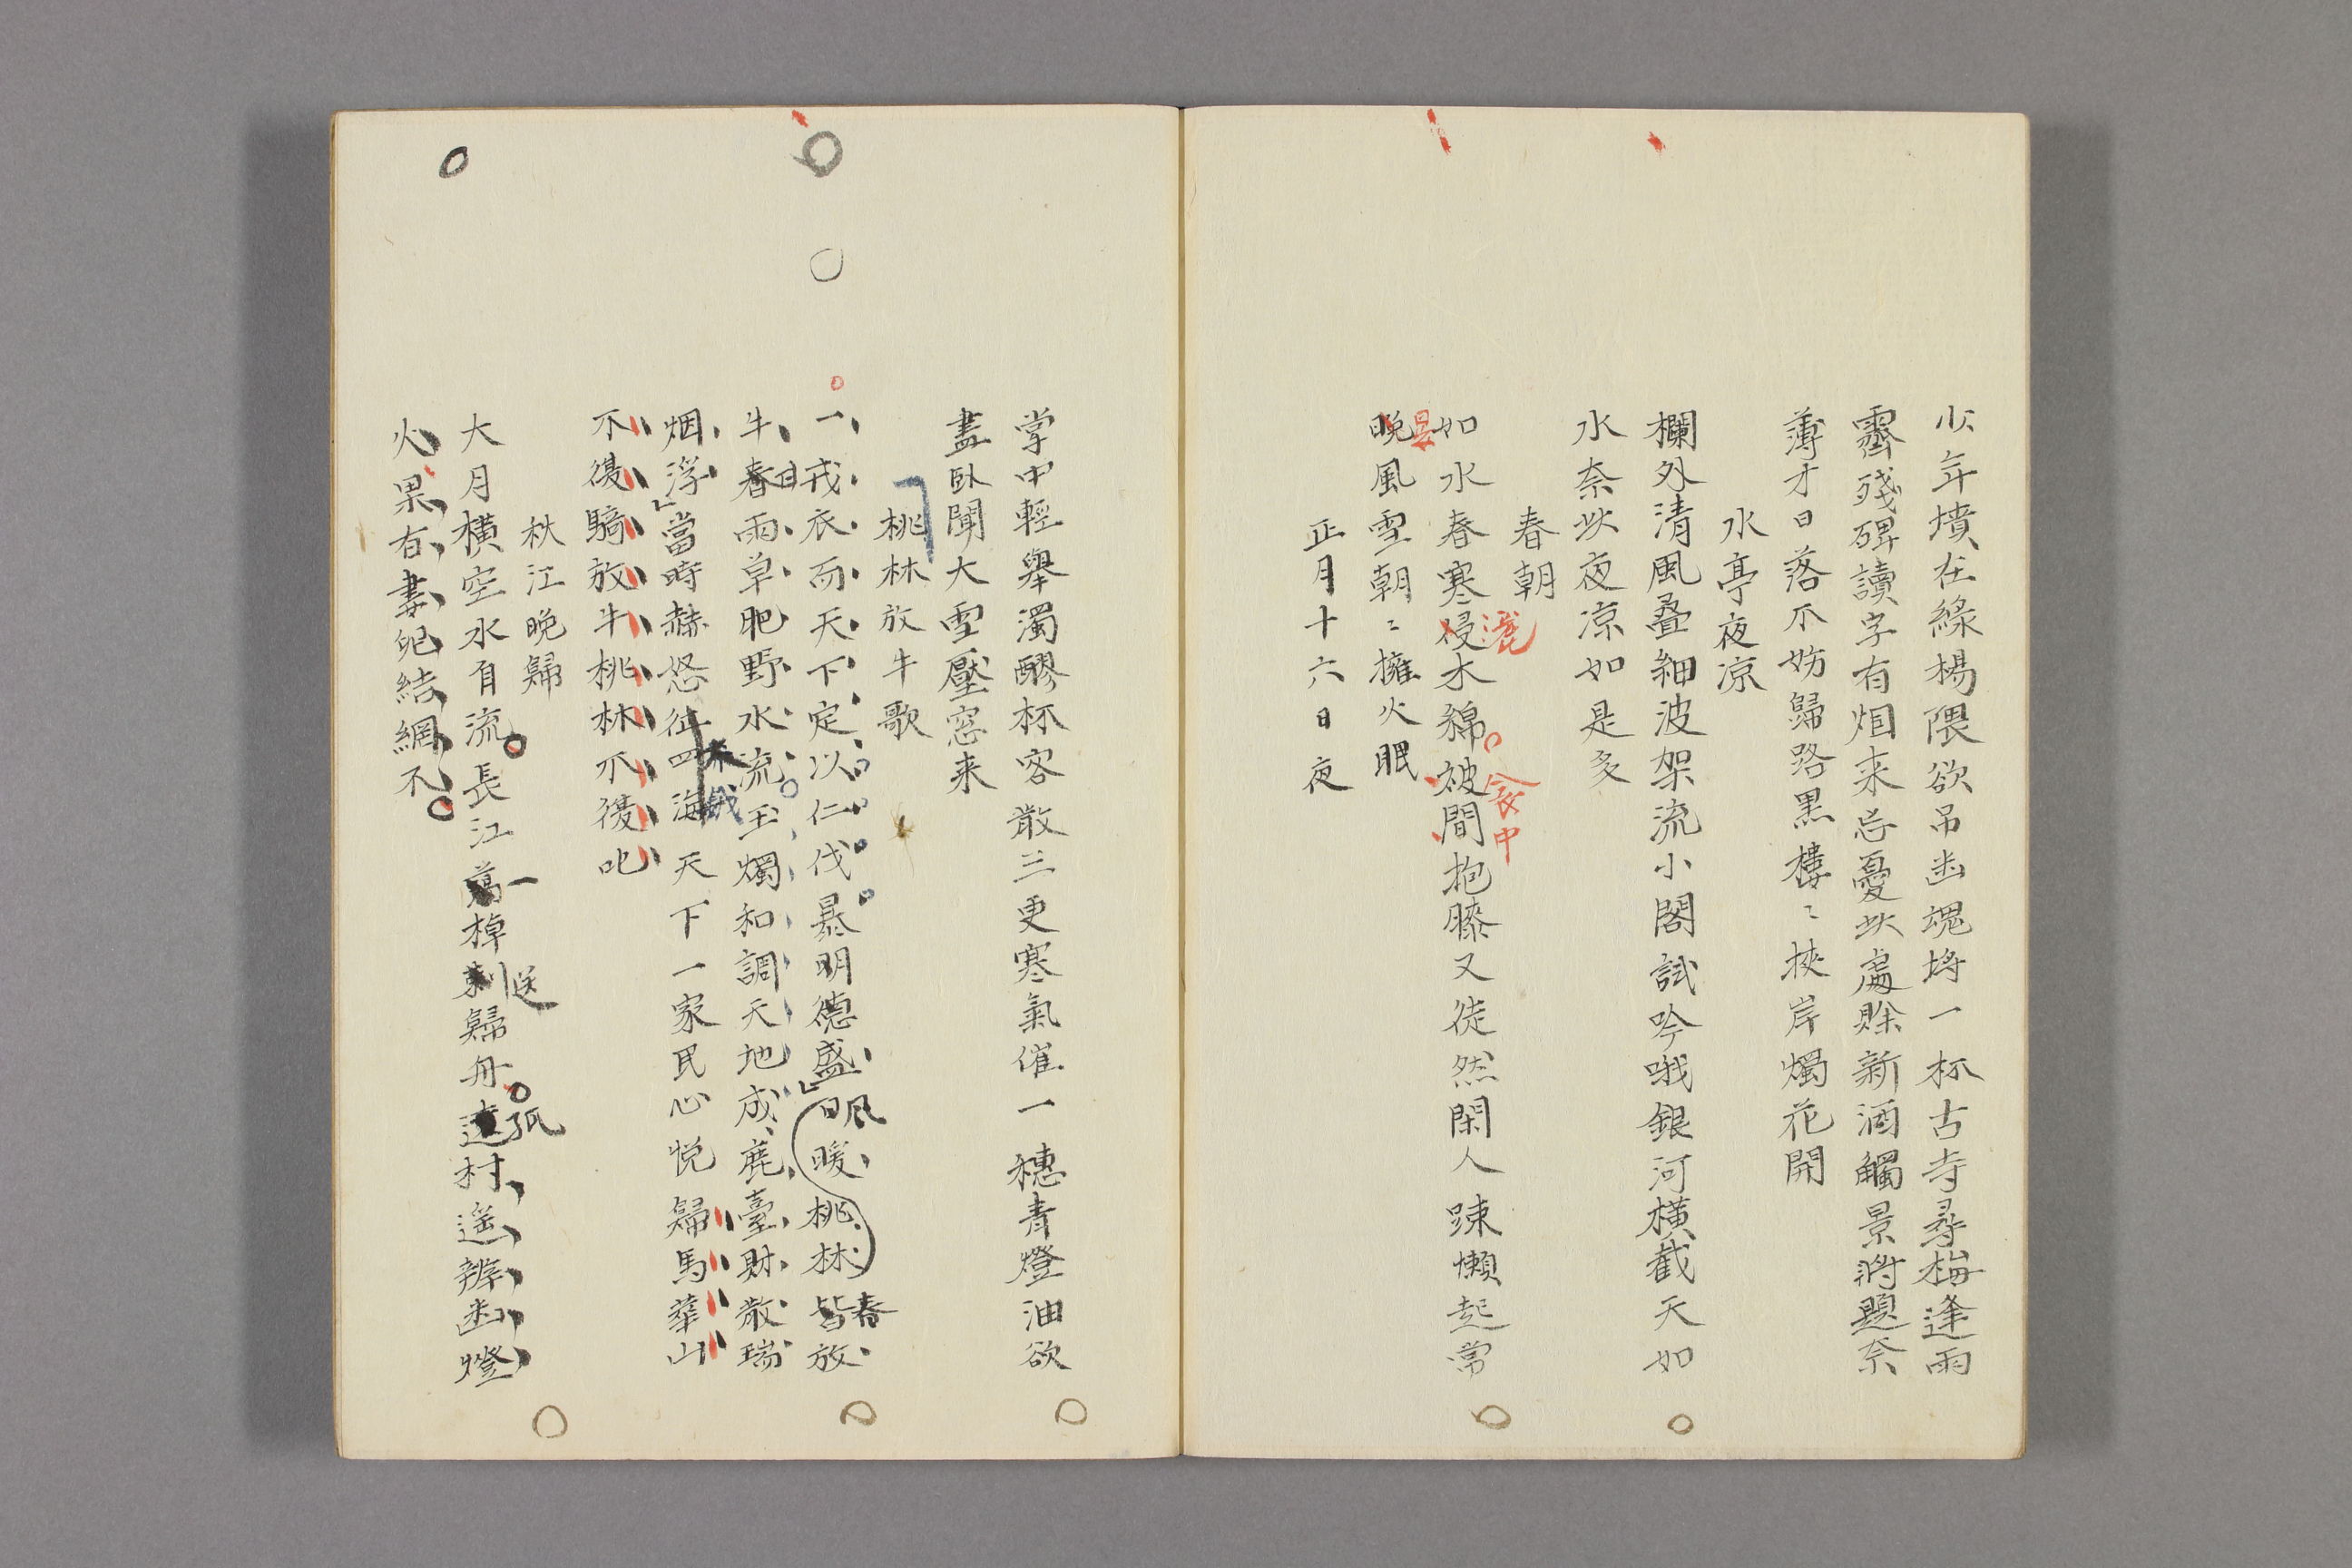 少年墳在綠楊隈欲吊幽魂揖一杯古寺尋梅逢雨
霽殘碑讀字有烟来忘憂此處賒新酒觸景將題奈
薄才日落不妨歸路黒樓〻挾岸燭花開
水亭夜凉
欄外清風疊細波架流小閣試吟哦銀河横截天如
水奈此夜凉如是多
春朝
如水春寒侵木綿被間抱膝又徒然閑人踈懶起常
漉
衾中
晚風雪朝〻擁火眠
晏
正月十六日夜
掌中輕舉濁醪杯客散三更寒氣催一穗青燈油欲
盡臥聞大雪壓窓来
桃林放牛歌
一戎衣而天下定以仁伐暴明德盛日暖桃林皆放
風
春
牛春雨草肥野水流玉燭和調天地成鹿臺財散瑞
日
烟浮當時赫怒征四海天下一家民心悦歸馬華山
不復騎放牛桃林不復叱
秋江晚歸
大月横空水有流長江萬棹刺歸舟遠村遥辨幽燈
一
送
孤
火果有妻兒結網不